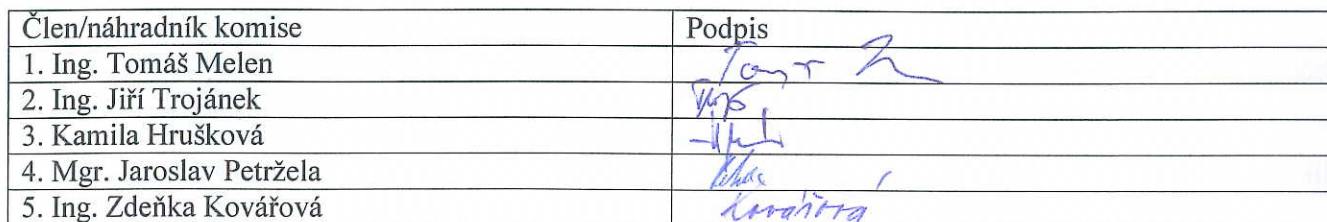 Člen/náhradník komise Podpis
1. Ing. Tomáš Melen
2. Ing. Jiří Trojánek
3. Kamila Hrušková
4. Mgr. Jaroslav Petržela
5. Ing. Zdeňka Kovářová Kovářová